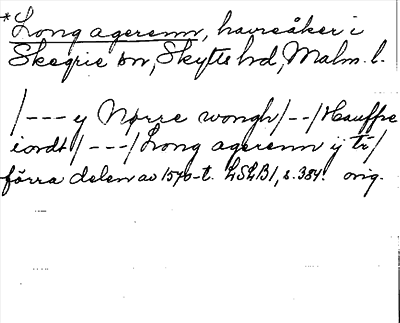 *Long agerenn, havreåker i
Skegrie sn, Skytts hd, Malm. l.
/--- y Nørre wongh/--/Hauffre
iordt/---/Long agerenn ÿ ti/
förra delen av 1570-t. LSLB1, s. 384. orig.